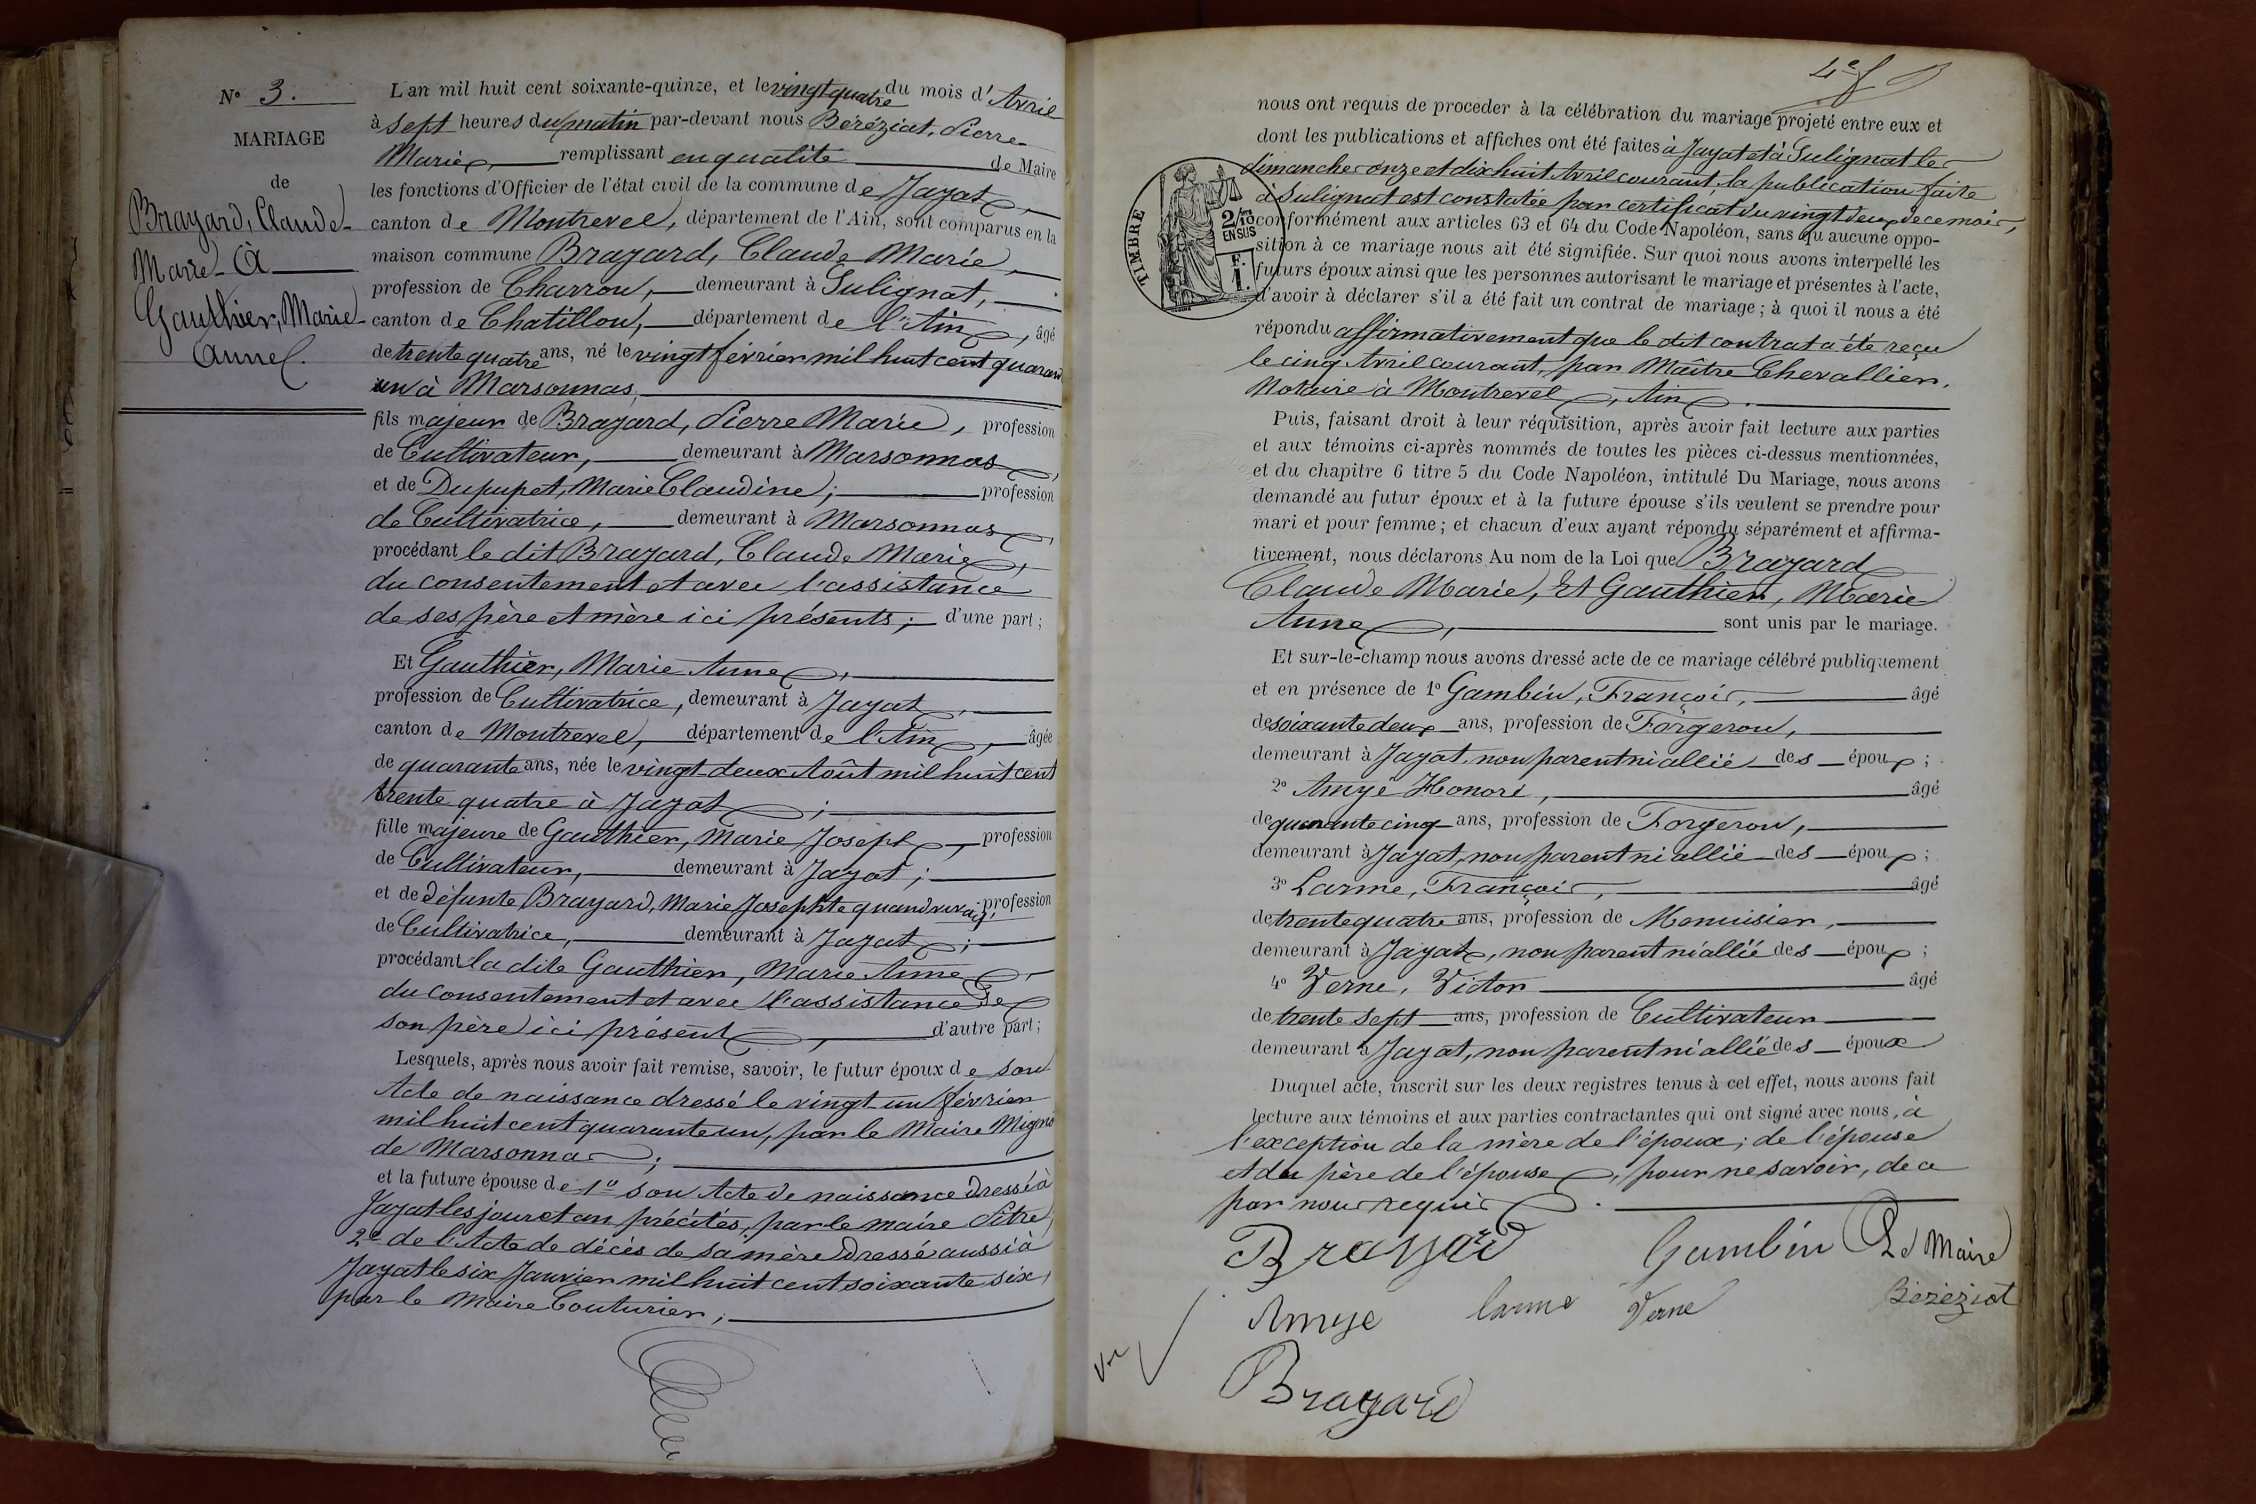 N° 3.
MARIAGE
de
Brayard, Claude
Marie À
Gauthier, Marie
Anne.
L'an mil huit cent soixante-quinze, et le vingt quatre du mois d'Avril
à sept heures du matin par-devant nous Béréziat, Pierre
Marie, remplissant en qualité de Maire
les fonctions d'Officier de l'état civil de la commune de Jayat,
canton de Montrevel, département de l'Ain, sont comparus en la
maison commune Brayard, Claude Marie,
profession de Charron, demeurant à Sulignat,
canton de Chatillon, département de l'Ain, âgé
de trente quatre ans, né le vingt février mil huit cent quarante
un à Marsonnas,
fils majeur de Brayard, Pierre Marie, profession
de Cultivateur, demeurant à Marsonnas,
et de Dupupet, Marie Claudine; profession
de Cultivatrice, demeurant à Marsonnas,
procédant le dit Brayard, Claude Marie,
du consentement et avec l'assistance
de ses père et mère ici présents; d'une part;
Et Gauthier, Marie Anne,
profession de Cultivatrice, demeurant à Jayat,
canton de Montrevel, département de l'Ain, âgée
de quarante ans, née le vingt-deux Août mil huit cent
trente quatre à Jayat;
fille majeure de Gauthier, Marie Joseph, profession
de Cultivateur, demeurant à Jayat;
et de défunte Brayard, Marie Josephte quand vivait, profession
de Cultivatrice, demeurant à Jayat;
procédant la dite Gauthier, Marie Anne,
du consentement et avec l'assistance de
son père ici présent, d'autre part;
Lesquels, après nous avoir fait remise, savoir, le futur époux de son
Acte de naissance dressé le vingt un février
mil huit cent quarante un, par le Maire
de Marsonnas;
et la future épouse de 1° son Acte de naissance dressé à
Jayat les jour et an précités, par le maire Pitre,
2° de l'Acte de décès de sa mère dressé aussi à
Jayat le six Janvier mil huit cent soixante six,
par le Maire Couturier;
4e f
nous ont requis de proceder à la célébration du mariage projeté entre eux et
dont les publications et affiches ont été faites à Jayat et à Sulignat les
dimanches onze et dix huit Avril courant, la publication faite
à Sulignat est constatée par certificat du vingt deux de ce mois,
conformément aux articles 63 et 64 du Code Napoléon, sans qu'aucune oppo-
sition à ce mariage nous ait été signifiée. Sur quoi nous avons interpellé les
futurs époux ainsi que les personnes autorisant le mariage et présentes à l'acte,
d'avoir à déclarer s'il a été fait un contrat de mariage; à quoi il nous a été
répondu affirmativement que le dit contrat a été reçu
le cinq Avril courant, par Maître Chevallier,
Notaire à Montrevel, Ain.
TIMBRE
2/10
EN SUS
F.
1.
Puis, faisant droit à leur réquisition, après avoir fait lecture aux parties
et aux témoins ci-après nommés de toutes les pièces ci-dessus mentionnées,
et du chapitre 6 titre 5 du Code Napoléon, intitulé Du Mariage, nous avons
demandé au futur époux et à la future épouse s'ils veulent se prendre pour
mari et pour femme; et chacun d'eux ayant répondu séparément et affirma-
tivement, nous déclarons Au nom de la Loi que Brayard
Claude Marie, Et Gauthier, Marie
Anne, sont unis par le mariage.
Et sur-le-champ nous avons dressé acte de ce mariage célébré publiquement
et en présence de 1° Gambin, François, âgé
de soixante deux ans, profession de Forgeron,
demeurant à Jayat, non parent ni allié des époux;
2° Amyé Honoré, âgé
de quarante cinq ans, profession de Forgeron,
demeurant à Jayat, non parent ni allié des époux;
3° Larme, François, âgé
de trente quatre ans, profession de Menuisier,
demeurant à Jayat, non parent ni allié des époux;
4° Verne, Victor âgé
de trente sept ans, profession de Cultivateur
demeurant à Jayat, non parent ni allié des époux
Duquel acte, inscrit sur les deux registres tenus à cet effet, nous avons fait
lecture aux témoins et aux parties contractantes qui ont signé avec nous, à
l'exception de la mère de l'époux; de l'épouse
et du père de l'épouse, pour ne savoir, de ce
par nous requis.
Brayard Gambin Le Maire
Amye larme Verne Béréziat
Brayard